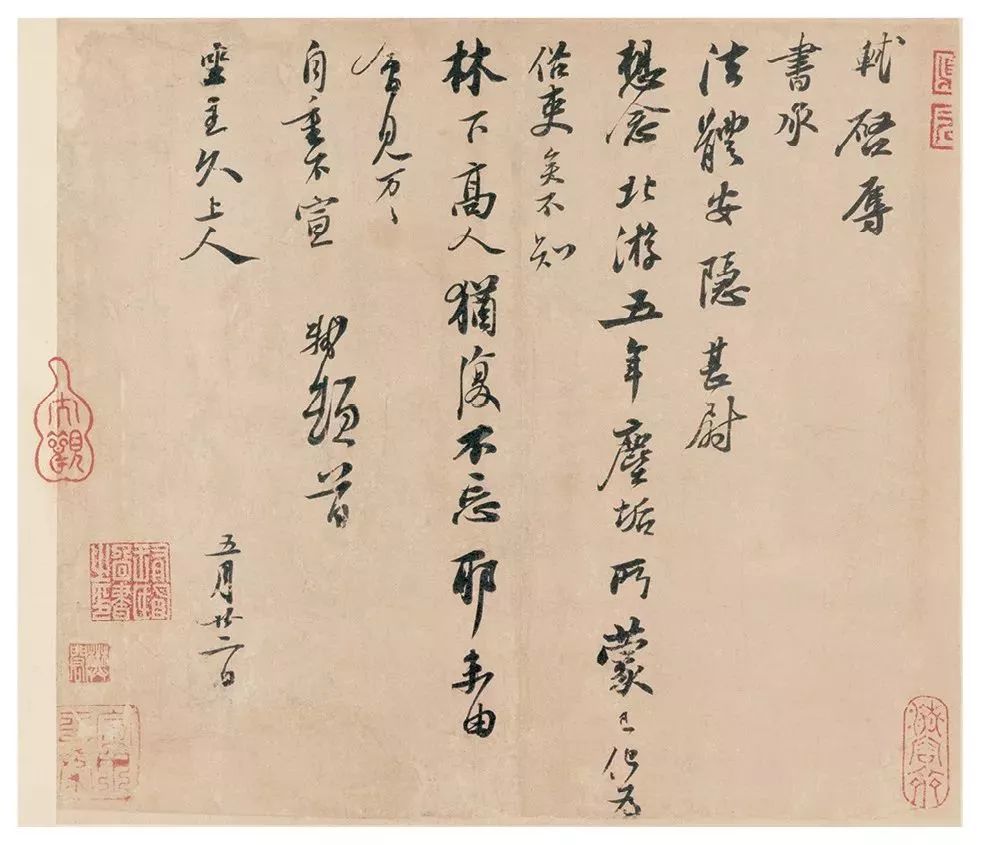 軾啓辱
書承
法體安隱甚尉
想念北游五年塵垢所蒙已化為
俗吏矣不知
林下高人猶復不忘耶未由
會見万〻
自重不宣 軾頓首
坐主久上人
五月廿二日
大觀